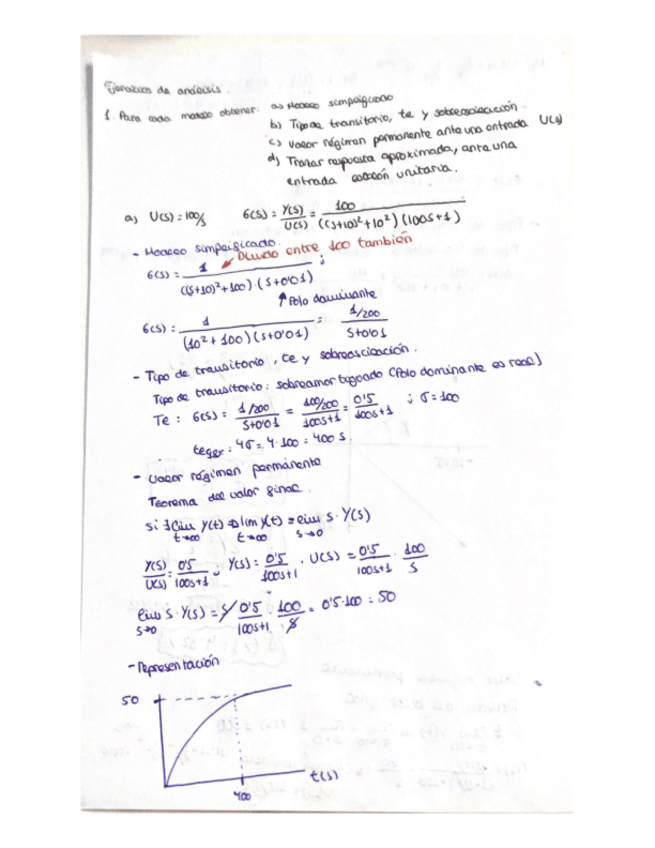 Ejercicios de análisis.
1. Para cada modelo obtener: a) Modelo simplificado
b) Tipo de transitorio, te y sobreoscilación.
c) Valor régimen permanente ante una entrada U(s)
d) Trazar respuesta aproximada, ante una
entrada escalón unitaria.
a) U(s) = 100/s G(s) = Y(s)/U(s) = 100/((s+10)²+10²)(100s+1)
- Modelo simplificado.
Divido entre 100 también
G(s) = 1/((s+10)²+100)·(s+0'01) ;
↑ Polo dominante
G(s) = 1/(10²+100)(s+0'01) = 1/200/s+0'01
- Tipo de transitorio, te y sobreoscilación.
Tipo de transitorio: sobreamortiguado (Polo dominante es real)
Te: G(s) = 1/200/s+0'01 = 100/200/100s+1 = 0'5/100s+1 ; σ = 100
te = 4σ = 4·100 = 400 s.
- Valor régimen permanente
Teorema del valor final.
si ∃ lim y(t) ⇒ lim y(t) = lim s·Y(s)
t→∞ t→∞ s→0
Y(s)/U(s) = 0'5/100s+1 , Y(s) = 0'5/100s+1 · U(s) = 0'5/100s+1 · 100/s
lim s·Y(s) = s · 0'5/100s+1 · 100/s = 0'5·100 = 50
s→0
- Representación
50
t(s)
400